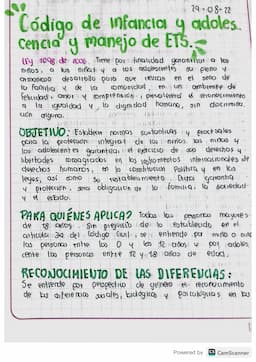 24-08-22
Código de infancia y adoles
cencia y manejo de ETS.
Ley 1098 de 2006 Tiene por finalidad garantizar a los
niños, a las niñas y a los adolescentes su pleno y
armonioso desarrollo para que crezcan en el seno de
la familia y de la comunidad, en un ambiente de
felicidad, amor y comprensión. prevalecerá el reconocimiento
a la igualdad y la dignidad humana, sin discrimina
ción alguna.
OBJETIVO: Establecer normas sustantivas y procesales
para la protección integral de los niños, las niñas y
los adolescentes garantizar el ejercicio de sus derechos y
libertades consagrados en los instrumentos internacionales de
derechos humanos, en la constitución Política y en las
leyes, así como su restablecimiento. Dicha garantía
y protección, será obligación de la familia, la sociedad
y el estado.
PARA QUIÉNES APLICA? Todas las personas mayores
de 18 años. Sin perjuicio de lo establecido en el
artículo 34 del código civil, se entiende por niño o niña
las personas entre los 0 y los 12 años y por adoles
cente las personas entre 12 y 18 años de edad.
RECONOCIMIENTO DE LAS DIFERENCIAS:
Se entiende por perspectiva de género el reconocimiento
de las diferencias sociales, biológicas y psicológicas en las
Powered by CamScanner